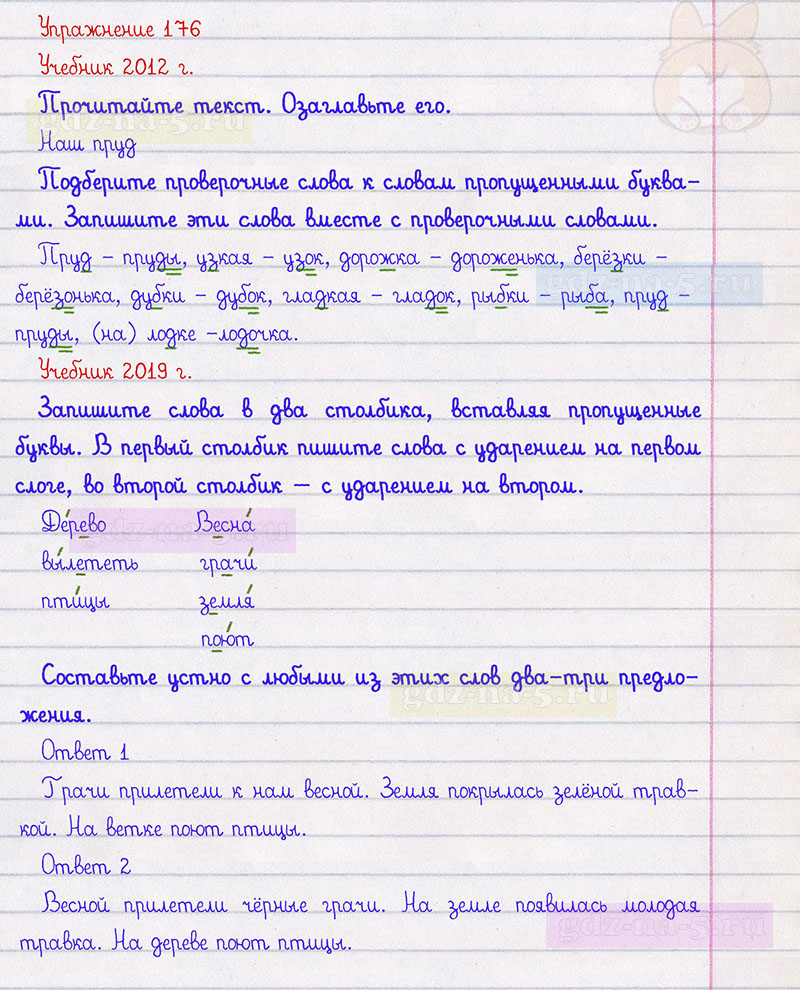 Упражнение 176
Учебник 2012 г.
Прочитайте текст. Озаглавьте его.
gdz-na-5.ru
Наш пруд
Подберите проверочные слова к словам пропущенными буква-
ми. Запишите эти слова вместе с проверочными словами.
Пруд – пруды, узкая – узок, дорожка – дороженька, берёзки –
gdz-na-5.ru
берёзонька, дубки – дубок, гладкая – гладок, рыбки – рыба, пруд –
пруды, (на) лодке –лодочка.
Учебник 2019 г.
Запишите слова в два столбика, вставляя пропущенные
буквы. В первый столбик пишите слова с ударением на первом
слоге, во второй столбик – с ударением на втором.
Де́рево Весна́
gdz-na-5.ru
вы́лететь грачи́
пти́цы земля́
пою́т
Составьте устно с любыми из этих слов два-три предло-
gdz-na-5.ru
жения.
Ответ 1
Грачи прилетели к нам весной. Земля покрылась зелёной трав-
кой. На ветке поют птицы.
Ответ 2
Весной прилетели чёрные грачи. На земле появилась молодая
gdz-na-5.ru
травка. На дереве поют птицы.